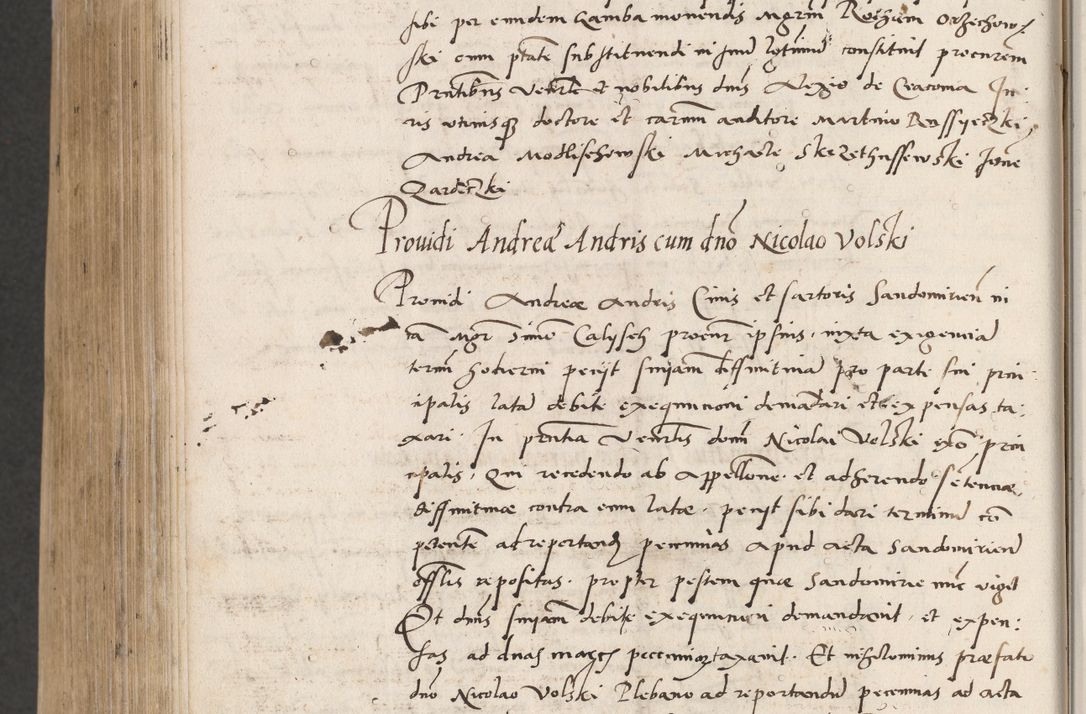 sibi per eundem Gamba monendis mgrm Rochum Orzechow/
ski cum ptate substituendi in suu lotinnu constituit procurem
Pntibus venrle et nobilibus dnis Alexio de Cracovia Iu:
ris utriusq doctore et carum auditore Martino Rossyeczki,
Andrea Modlischowski Michaele Skrzethussewski Ioane
Zardeczki
Providi Andreæ Andris cum dno Nicolao Volski
Providi Andreæ Andris Civis et sartoris Sandomirien in
ca mgr Simo Calijsch procur ipsius, iuxta exigenciã
termi hodierni petijt sniam diffinitivã pro parte sui prin
cipalis latã debite exequutioni demãdari et expensas ta:
xari. In pntia venrlis domi Nicolai Volski exõ prin
cipalis, qui recedendo ab appellone. et adherendo setenciæ
diffinitivæ contra eum latæ. petijt sibi dari terminũ cõ
petentẽ ad reportand pecunias apud acta Sandomirieñ
offlis repositas. propter pestem quæ Sandomiriæ nuc viget
Et dnus sniam debite exequutioni demandavit. et expen:
sas ad duas marcs pecuniar taxavit. Et nihilominus præfato
dno Nicolao Volski Plebano ad reportandũ pecunias ad acta